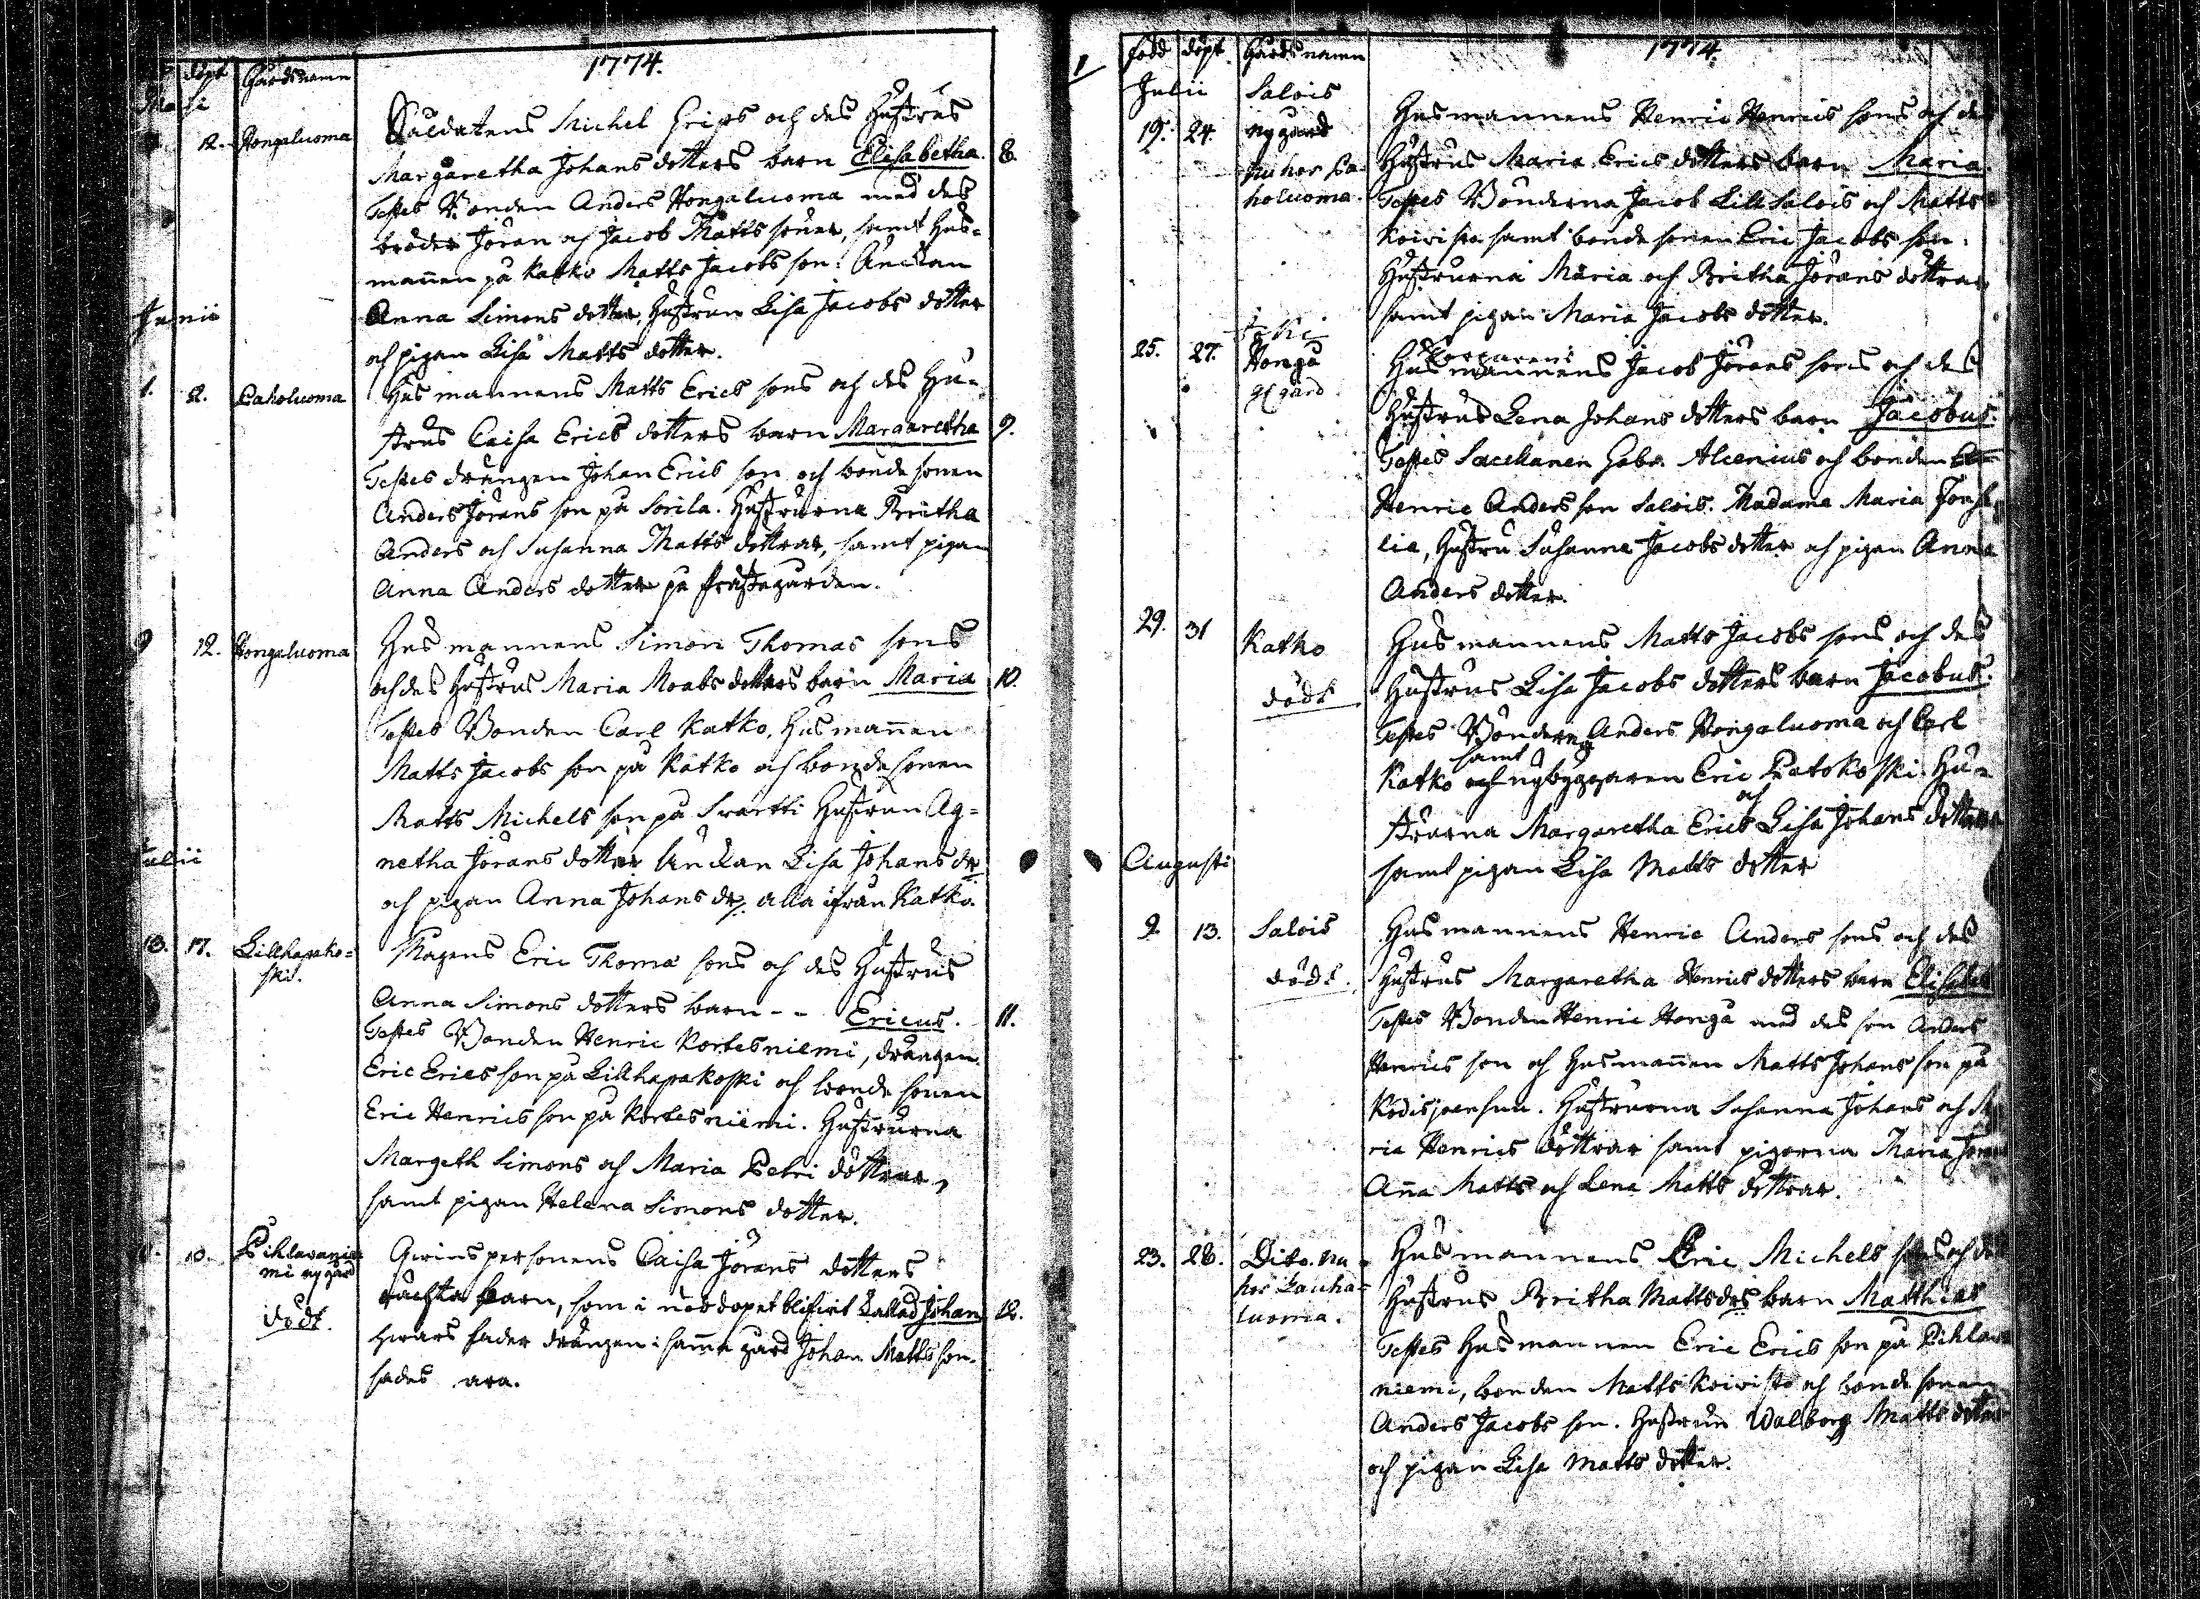 1774.
döpt Gårdsnamn
Maji
12. Hongaluoma
Soldatens Michel Grips och des Hustrus
Margaretha Johans dotters barn Elisabetha. 8.
Testes Bonden Anders Hongaluoma med des
bröder Jöran och Jacob Matts söner, samt Hus=
mannen på Katko Matts Jacobs son. Änckan
Anna Simons dotter, Hustrun Lisa Jacobs dotter
och pigan Lisa Matts dotter.
Junii
1. 2. Paholuoma
Husmannens Matts Erics sons och des Hu=
strus Caisa Erics dotters barn Margaretha 9.
Testes drängen Johan Erics son och bonde sonen
Anders Jörans son på Sorila. Hustrurna Britha
Anders och Susanna Matts döttrar, samt pigan
Anna Anders dotter på Prästegården.
9 12. Hongaluoma
Husmannens Simon Thomas sons
och des Hustrus Maria Moabs dotters barn Maria 10.
Testes Bonden Carl Katko, Husmannen
Matts Jacobs son på Katko och bonde sonen
Matts Michels son på Svartti Hustrun Ag=
netha Jörans dotter Änckan Lisa Johans dr
och pigan Anna Johans dr. alla ifrån Katko.
Julii
13. 17. Lillhapako=
ski.
Magens Eric Thomæ sons och des Hustrus
Anna Simons dotters barn - - Ericus. 11.
Testes Bonden Henric Kortesniemi, drängen
Eric Erics son på Lillhapakoski och bonde sonen
Eric Henrics son på Kortesniemi. Hustrurna
Margeth Simons och Maria Petri döttrar,
samt pigan Helena Simons dotter.
10. Pihlavanie
mi nygård
död.
Qvinspersonens Caisa Jörans dotters
oächta barn, som i nöddopet blifvit kallad Johan 12.
hvars fader drängen i samma gård Johan Matts son.
sades vara.
1774.
född döpt. Gårdsnamn
Julii Salois
19. 24. nygård
nu hos Pa=
holuoma.
Husmannens Henric Henrics sons och des
Hustrus Maria Erics dotters barn Maria.
Testes Bönderna Jacob Lill Salois och Matts
Koivisto samt bonde sonen Eric Jacobs son.
Hustrurna Maria och Britha Jörans döttrar
samt pigan Maria Jacobs dotter.
25. 27. Honga
gl gård
Korporens
Husmannens Jacob Jörans sons och des
Hustrus Lena Johans dotters barn Jacobus.
Testes Sacellanen Gabr. Alcenius och bonden
Henric Anders son Salois. Madama Maria
lia, Hustru Susanna Jacobs dotter och pigan Anna
Anders dotter.
29. 31 Katko
död
Husmannens Matts Jacobs sons och des
Hustrus Lisa Jacobs dotters barn Jacobus.
Testes Bönderna Anders Hongaluoma och Carl
samt
Katko och nybyggaren Eric Patokoski. Hu=
och
strurna Margaretha Erics Lisa Johans döttrar
samt pigan Lisa Matts dotter
Augusti
9 13. Salois
död.
Husmannens Henric Anders sons och des
Hustrus Margaretha Henrics dotters barn Elisabet
Testes Bonden Henric Honga med des son Anders
Henrics son och Husmannen Matts Johans son på
Kodisjoensuu. Hustrurna Susanna Johans och Ma
ria Henrics döttrar samt pigorna Maria Jörans
Anna Matts och Lena Matts döttrar.
23. 28. Dito. nu
hos Lauha=
luoma.
Husmannens Eric Michels sons och des
Hustrus Britha Matts drs barn Matthias
Testes Husmannen Eric Erics son på Pihlava
niemi, bonden Matts Koivisto och bonde sonen
Anders Jacobs son. Hustrun Walborg Matts dotter
och pigan Lisa Matts dotter.